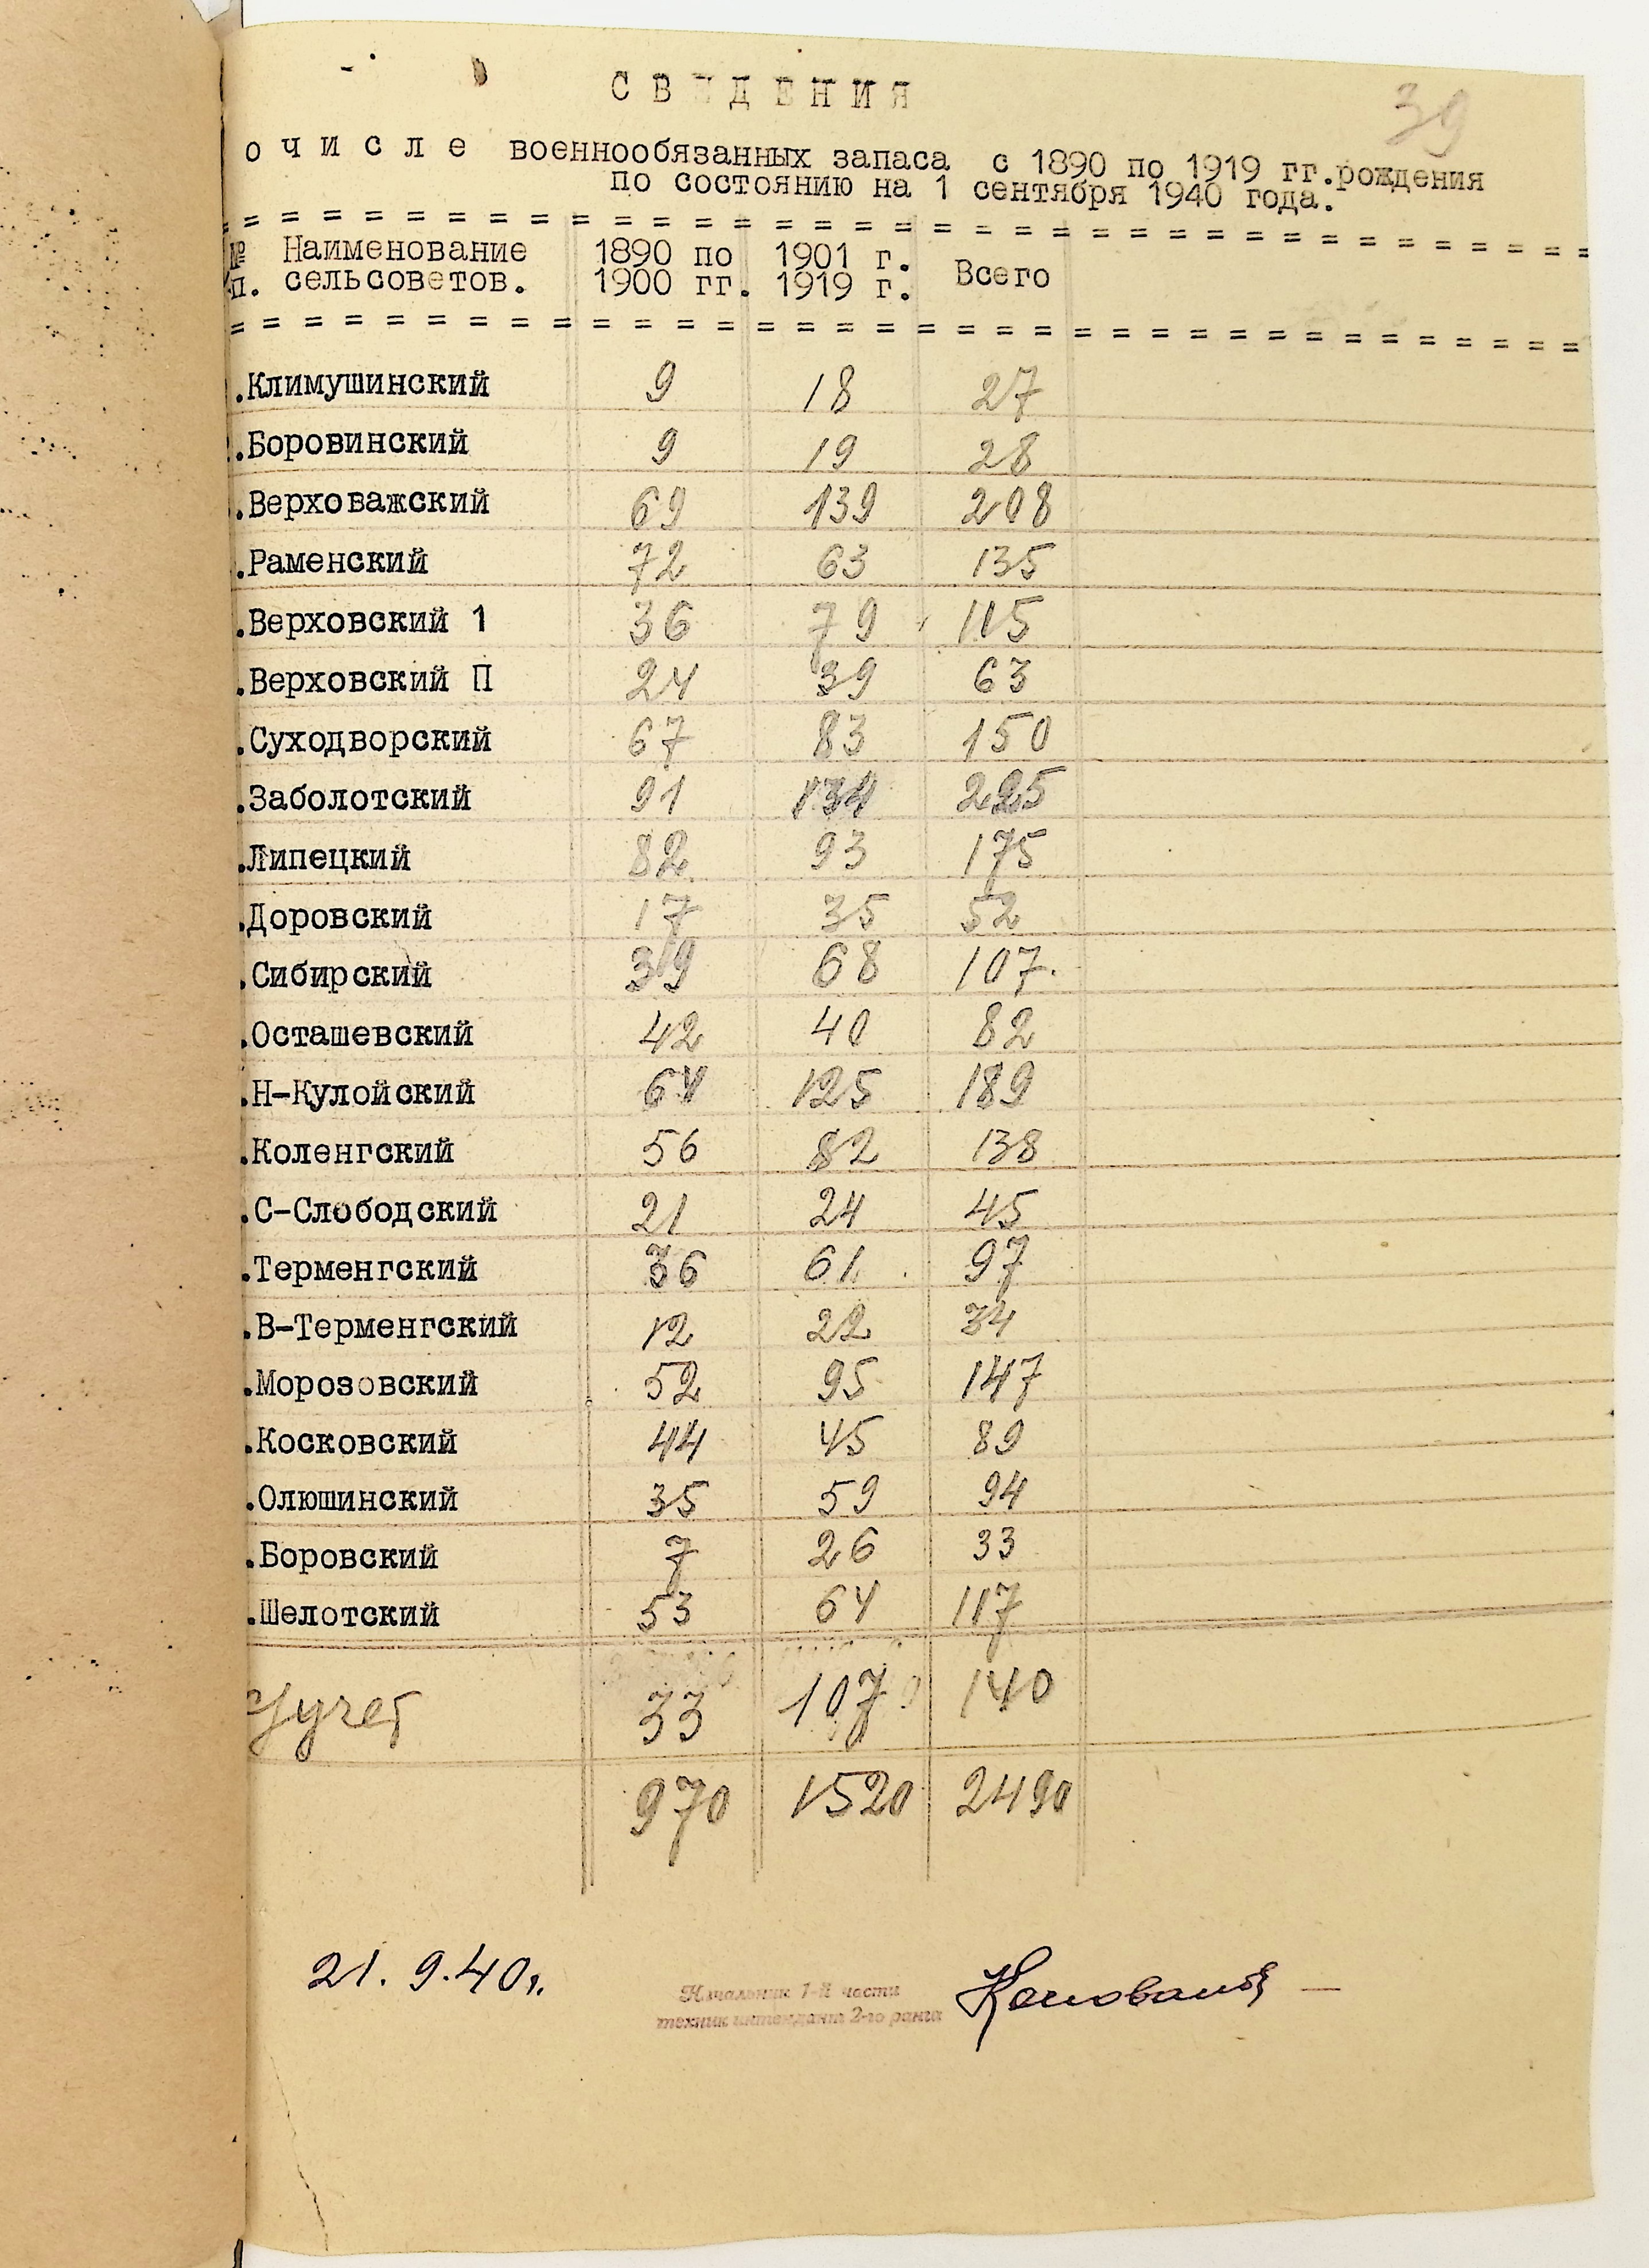 39
СВЕДЕНИЯ
о числе военнообязанных запаса с 1890 по 1919 гг.рождения
по состоянию на 1 сентября 1940 года.
= = = = = = = = = = = = = = = = = = = = = = = = = = = = = = = = = =
№ Наименование 1890 по 1901 г. Всего
п. сельсоветов. 1900 гг. 1919 г.
= = = = = = = = = = = = = = = = = = = = = = = = = = = = = = = = = =
.Климушинский 9 18 27
.Боровинский 9 19 28
.Верховажский 69 139 208
.Раменский 72 63 135
.Верховский 1 36 79 115
.Верховский П 24 39 63
.Суходворский 67 83 150
.Заболотский 91 134 225
.Липецкий 82 93 175
.Доровский 17 35 52
.Сибирский 39 68 107.
.Осташевский 42 40 82
.Н-Кулойский 64 125 189
.Коленгский 56 82 138
.С-Слободский 21 24 45
.Терменгский 36 61 97
.В-Терменгский 12 22 34
.Морозовский 52 95 147
.Косковский 44 45 89
.Олюшинский 35 59 94
.Боровский 7 26 33
.Шелотский 53 64 117
33 107 140
970 1520 2490
21.9.40г.
Начальник 1-й части
техник интенданта 2-го ранга